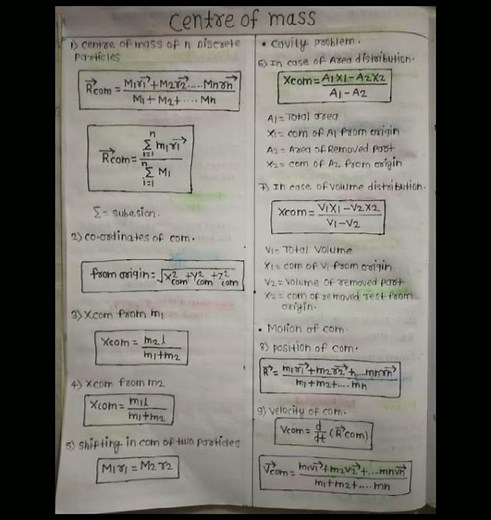 Centre of mass
1) centre of mass of n Discrete
Particles
R⃗com = M1r1⃗ + M2r2⃗ ..... Mnrn⃗ / M1 + M2 + .... Mn
R⃗com = Σ(i=1 to n) m1r1⃗ / Σ(i=1 to n) M1
Σ = subesion.
2) co-ordinates of com.
from origin = √x²com + y²com + z²com
3) Xcom from m1
Xcom = m2l / m1+m2
4) Xcom from m2
Xcom = m1l / m1+m2
5) Shifting in com of two particles
M1r1 = M2r2
• Cavity problem.
6) In case of Area distribution.
Xcom = A1X1 - A2X2 / A1 - A2
A1 = Total area
X1 = com of A1 from origin
A2 = Area of Removed Part
X2 = com of A2 from origin
7) In case of volume distribution.
Xcom = V1X1 - V2X2 / V1 - V2
V1 = Total volume
X1 = com of V1 from origin
V2 = volume of removed part
X2 = com of removed from
origin.
• Motion of com.
8) position of com.
R⃗ = m1r1⃗ + m2r2⃗ + ... mnrn⃗ / m1 + m2 + .... mn
9) velocity of com.
Vcom = d/dt (R⃗com)
V⃗com = m1v1⃗ + m2v2⃗ + ... mnvn⃗ / m1 + m2 + .... mn